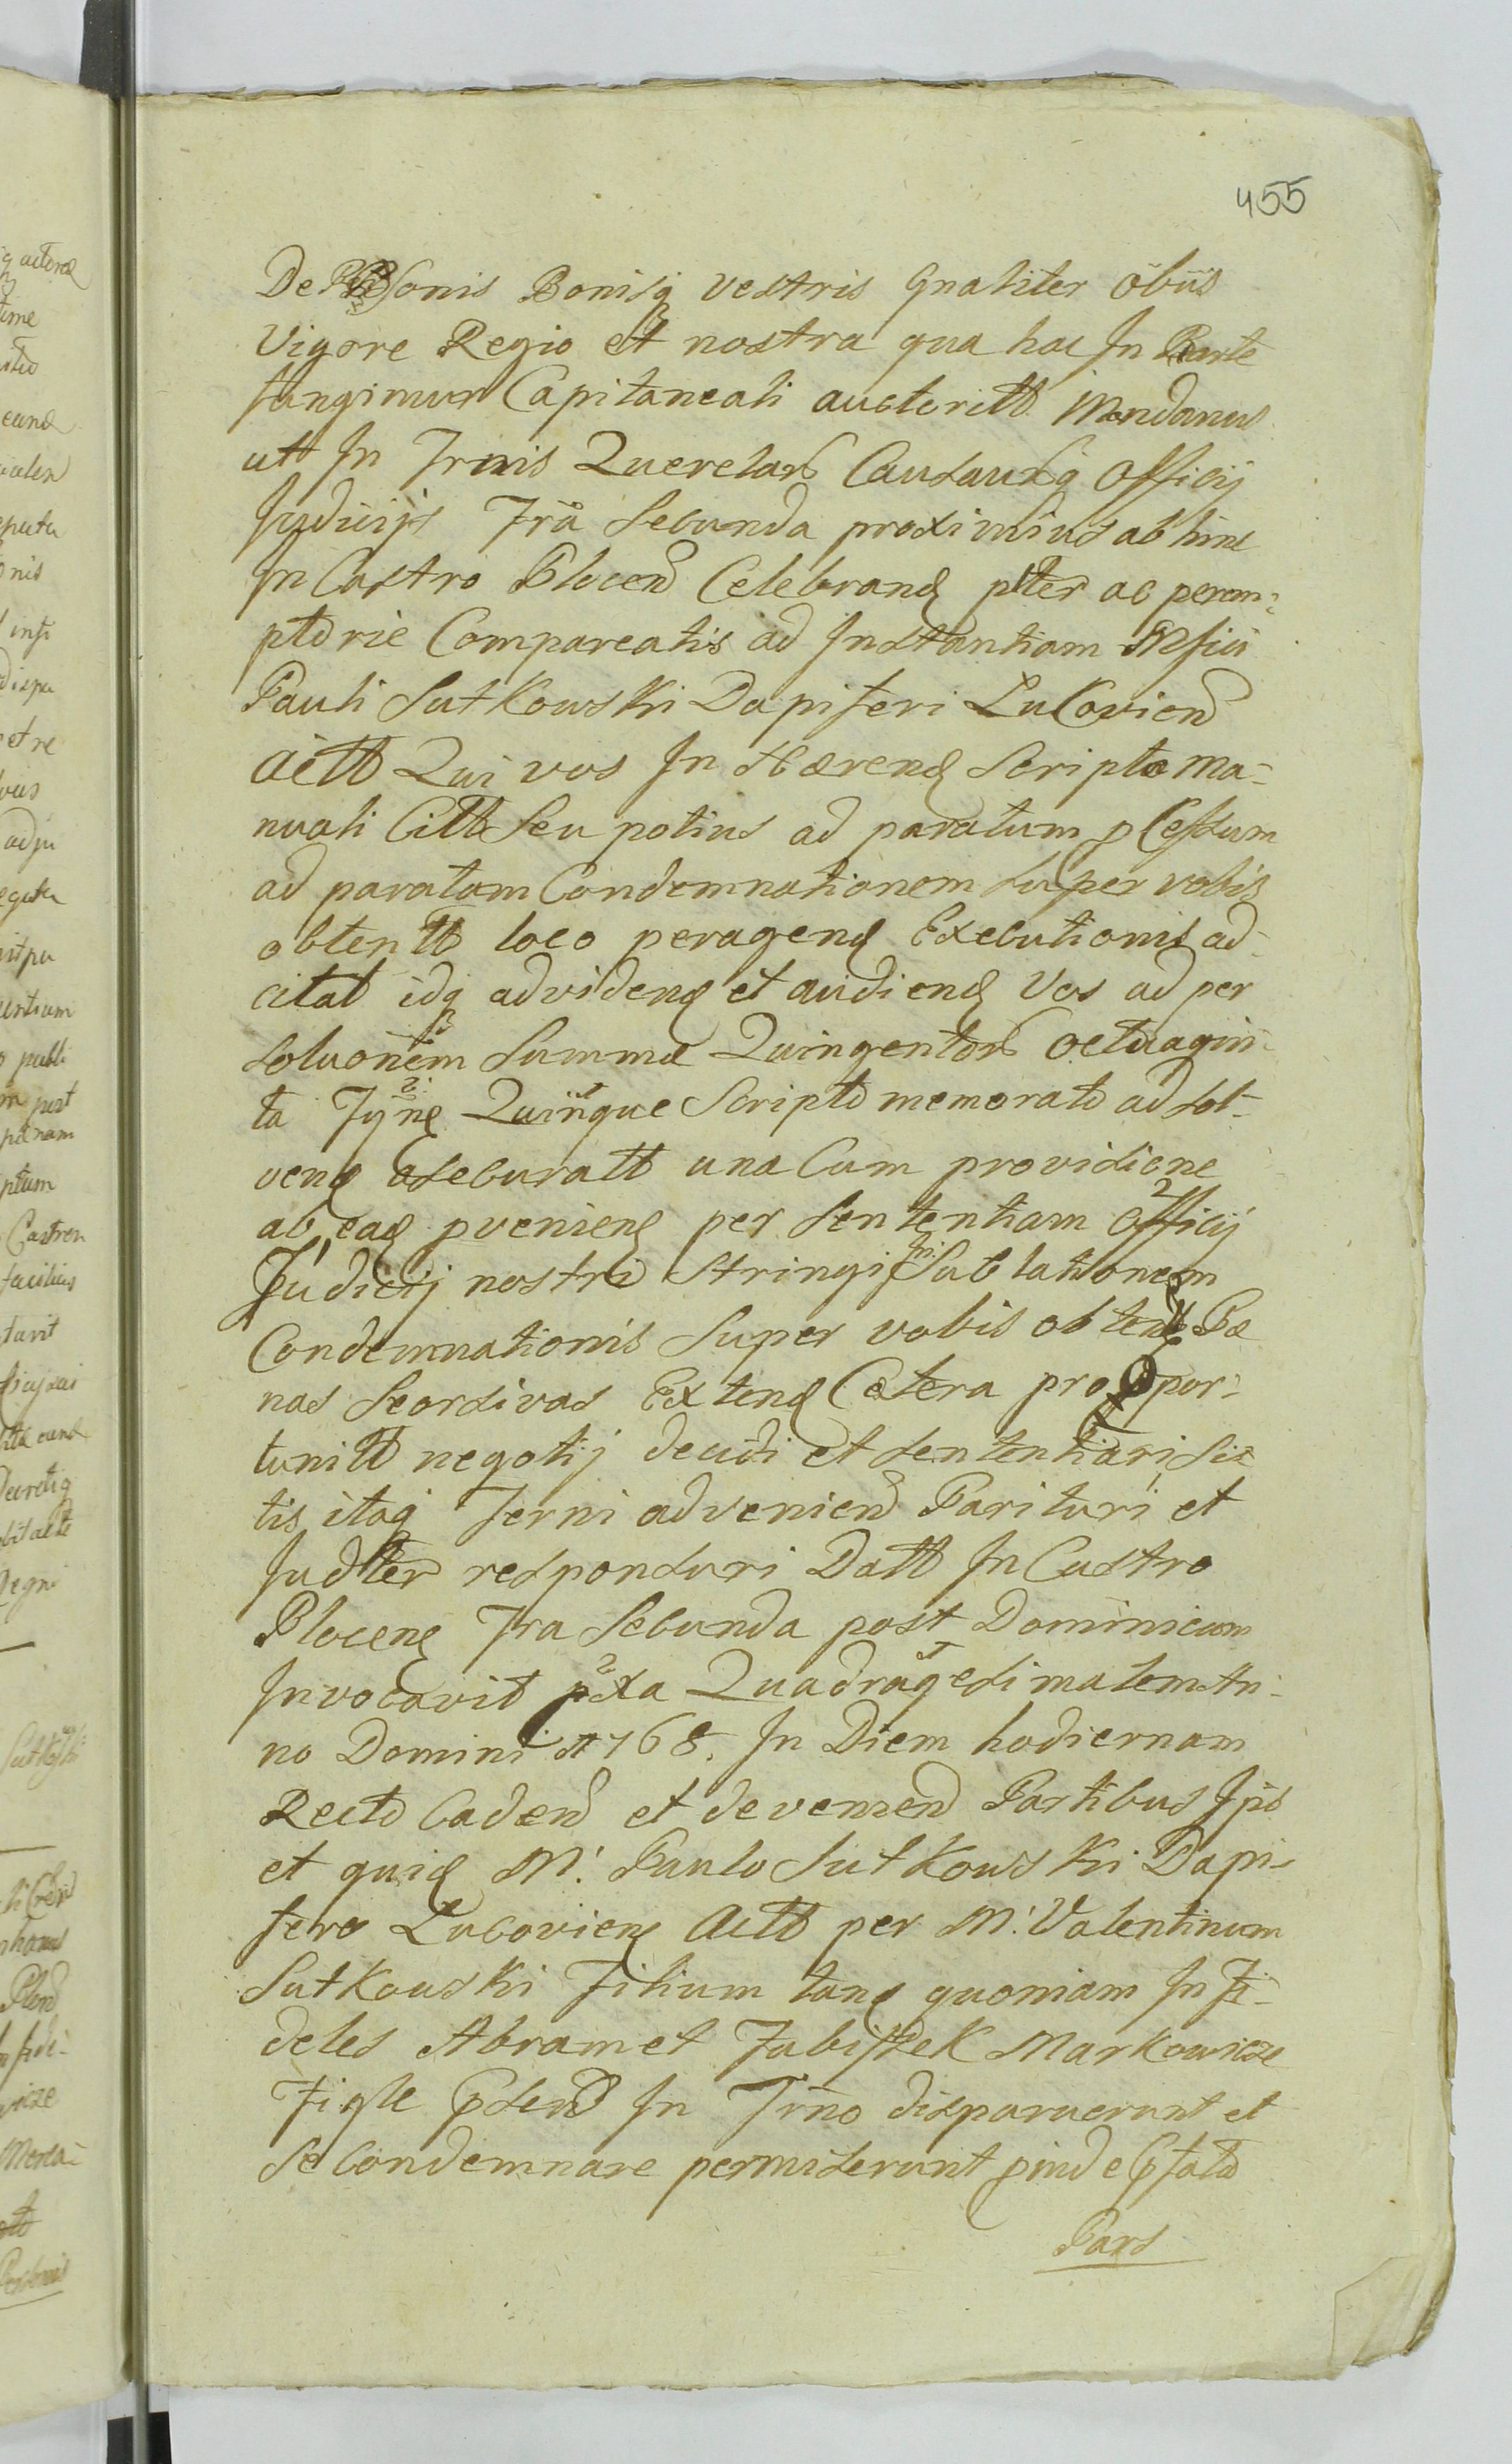 455
De Personis Bonisq vestris Gnaliter obus
Vigore Regio et nostra qua hac In Parte
fungimur Capitaneali auctoritt Mandamus
utt In Trmis Querelarb Causarumq Officij
Judicijs Fria Secunda proximius ab hinc
In Castro Plocen Celebrand pltter ac perem-
ptorie Compareatis ad Instantiam Mfici
Pauli Sutkowski Dapiferi Lukovien
actt Qui vos In Hærend Scripto ma-
nuali Citt Seu potius ad paratum pcessum
ad paratam Condemnationem super vobis
obtentt loco peragend Executionis ad-
citat idq ad vidend et audiend Vos ad per
soluonem Summæ Quingentorb octuagin-
ta Tyne Quinque Scripto memorato ad sol-
vend asecuratt una Cum provisione
ab ead pvenien per Sententiam Officij
Judicij nostri stringi In Sublationem
Condemnationis super vobis obtentt Pæ
nas Seorsivas Extend Cætera pro oppor-
tunitt negotij decidi et sententiari sis
tis itaq Termi advenien Parituri et
Judlter responsuri Datt In Castro
Plocen Fria Secunda post Dominicam
Invocavit pxta Quadragesimalem An-
no Domini 1768. In Diem hodiernam
Recto Caden et devenien Partibus Ips
et quid M. Paulo Sutkowski Dapi-
fero Lucovien Actt per M. Valentinum
Sutkowski Filium tanq quoniam Infi-
deles Abram et Jabissek Markowicze
Figle In Trmo disparuerunt et
se Condemnare permiserunt pinde
Pars